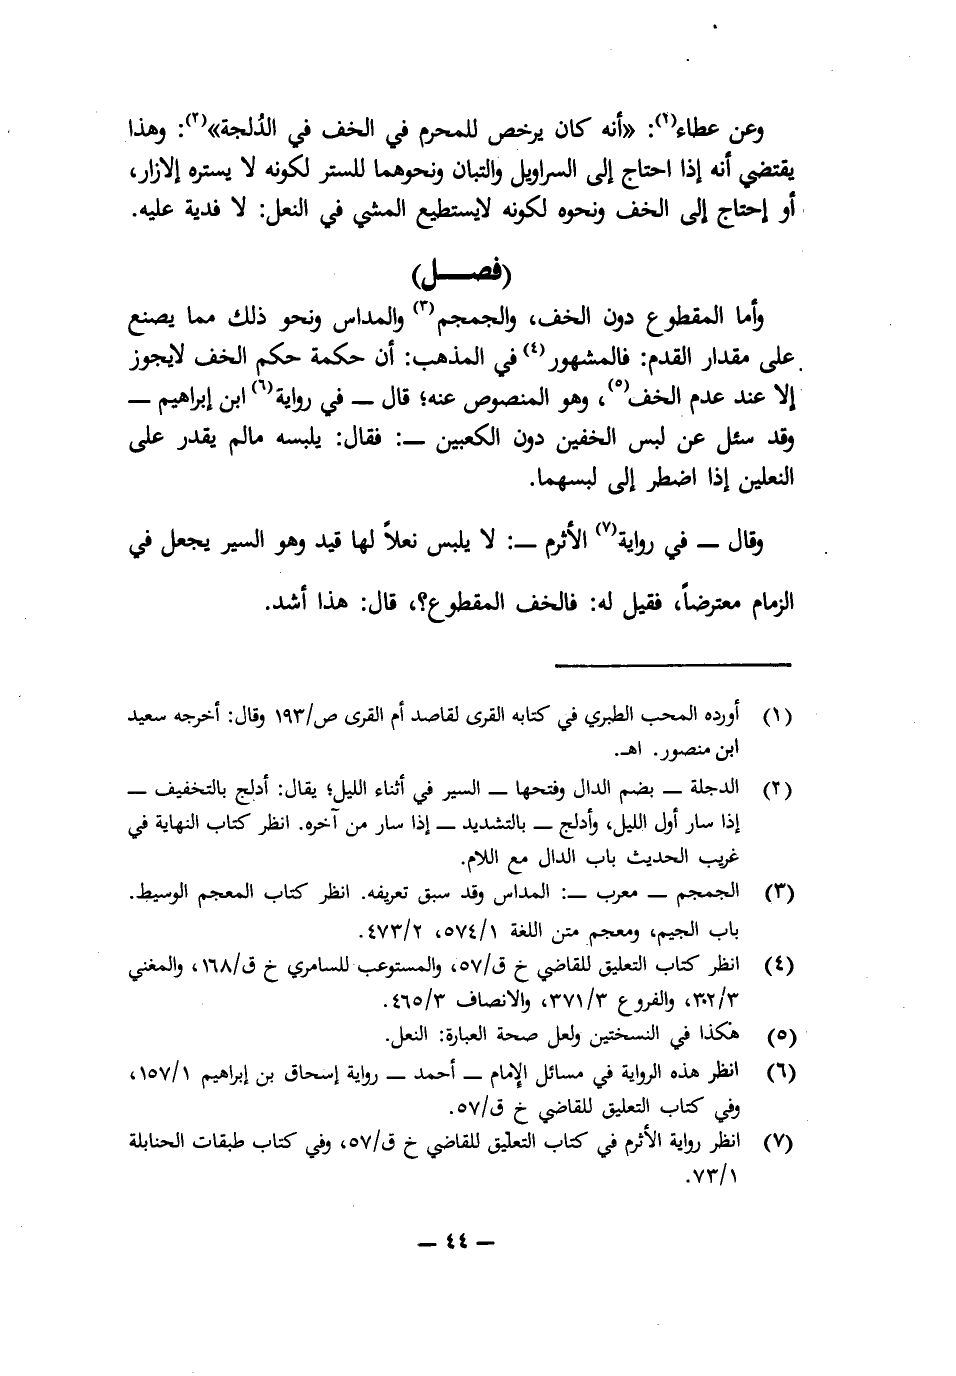 وعن عطاء(٢): «أنه كان يرخص للمحرم في الخف في الدُلجة»(٢): وهذا
يقتضي أنه إذا احتاج إلى السراويل والتبان ونحوهما للستر لكونه لا يستره إلازار،
أو إحتاج إلى الخف ونحوه لكونه لايستطيع المشي في النعل: لا فدية عليه.
(فصــــل)
وأما المقطوع دون الخف، والجمجم(٣) والمداس ونحو ذلك مما يصنع
على مقدار القدم: فالمشهور(٤) في المذهب: أن حكمة حكم الخف لايجوز
إلا عند عدم الخف(٥)، وهو المنصوص عنه؛ قال ــ في رواية(٦) ابن إبراهيم ــ
وقد سئل عن لبس الخفين دون الكعبين ــ: فقال: يلبسه مالم يقدر على
النعلين إذا اضطر إلى لبسهما.
وقال ــ في رواية(٧) الأثرم ــ: لا يلبس نعلاً لها قيد وهو السير يجعل في
الزمام معترضاً، فقيل له: فالخف المقطوع؟، قال: هذا أشد.
(١) أورده المحب الطبري في كتابه القرى لقاصد أم القرى ص/١٩٣ وقال: أخرجه سعيد
ابن منصور. اهـ.
(٢) الدجلة ــ بضم الدال وفتحها ــ السير في أثناء الليل؛ يقال: أدلج بالتخفيف ــ
إذا سار أول الليل، وأدلج ــ بالتشديد ــ إذا سار من آخره. انظر كتاب النهاية في
غريب الحديث باب الدال مع اللام.
(٣) الجمجم ــ معرب ــ: المداس وقد سبق تعريفه. انظر كتاب المعجم الوسيط.
باب الجيم، ومعجم متن اللغة ٥٧٤/١، ٤٧٣/٢.
(٤) انظر كتاب التعليق للقاضي خ ق/٥٧، والمستوعب للسامري خ ق/١٦٨، والمغني
٣٠٢/٣، والفروع ٣٧١/٣، والانصاف ٤٦٥/٣.
(٥) هكذا في النسختين ولعل صحة العبارة: النعل.
(٦) انظر هذه الرواية في مسائل الإمام ــ أحمد ــ رواية إسحاق بن إبراهيم ١٥٧/١،
وفي كتاب التعليق للقاضي خ ق/٥٧.
(٧) انظر رواية الأثرم في كتاب التعليق للقاضي خ ق/٥٧، وفي كتاب طبقات الحنابلة
٧٣/١.
ــ ٤٤ ــ